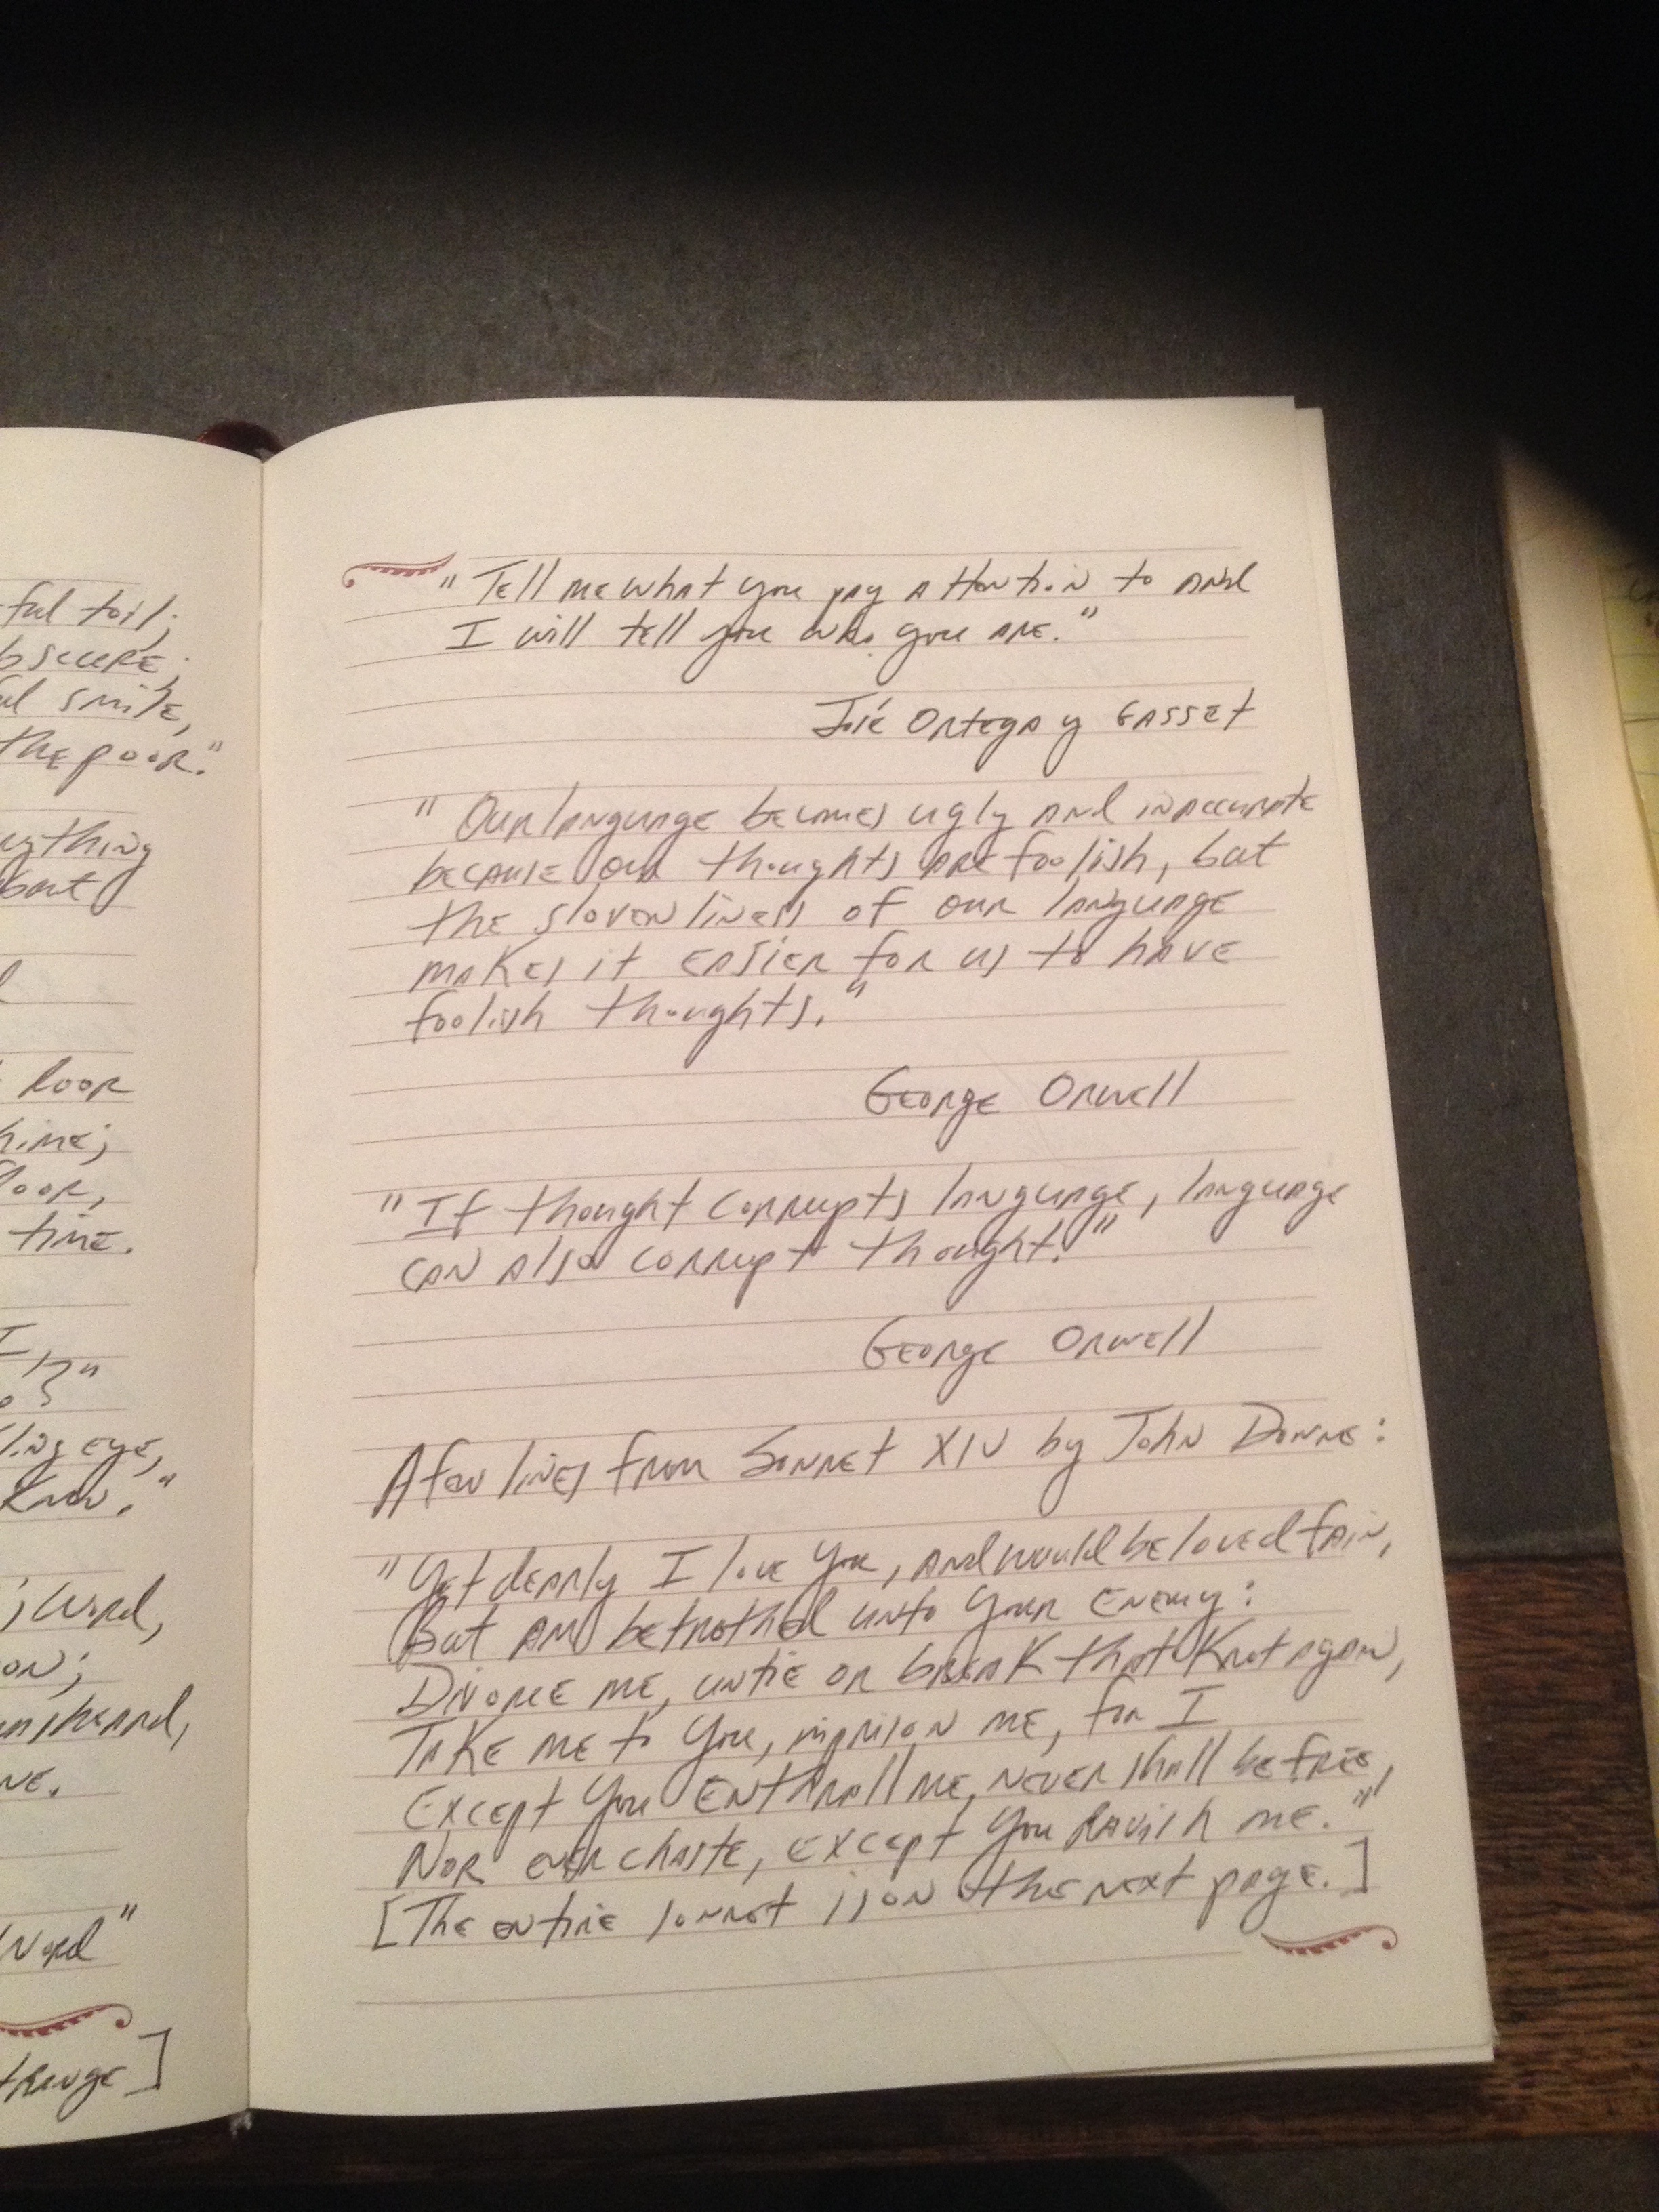 ful toil;
bscure;
ul smile,
the poor."
ything
bout
l
Poor
hime;
loor,
time.
I,
o?"
ling eye,
know."
; word,
on;
unheard,
ne.
Word"
trange]
"Tell me what you pay attention to and
I will tell you who you are."
José Ortega y Gasset
"Our language becomes ugly and inaccurate
because our thoughts are foolish, but
the slovenliness of our language
makes it easier for us to have
foolish thoughts."
George Orwell
"If thought corrupts language, language
can also corrupt thought."
George Orwell
A few lines from Sonnet XIV by John Donne:
"Yet dearly I love You, and would be loved fain,
But am betrothed unto Your Enemy:
Divorce me, untie or break that Knot again,
Take me to You, imprison me, for I
Except You Enthrall me, never shall be free,
Nor ever chaste, except You Ravish me."
[The entire sonnet is on the next page.]